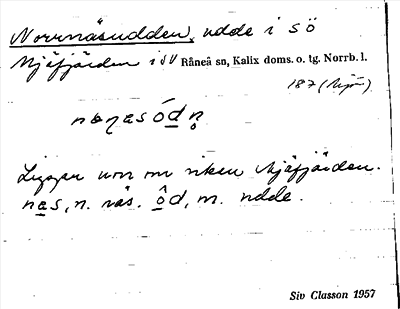 Norrnäsudden, udde i sö
Mjöfjärden i SV Råneå sn, Kalix doms. o. tg. Norrb. l.
187 (Mjö)
Ligger um om viken Mjöfjärden.
nas, n. näs. ôd, m. udde.
Siv Classon 1957